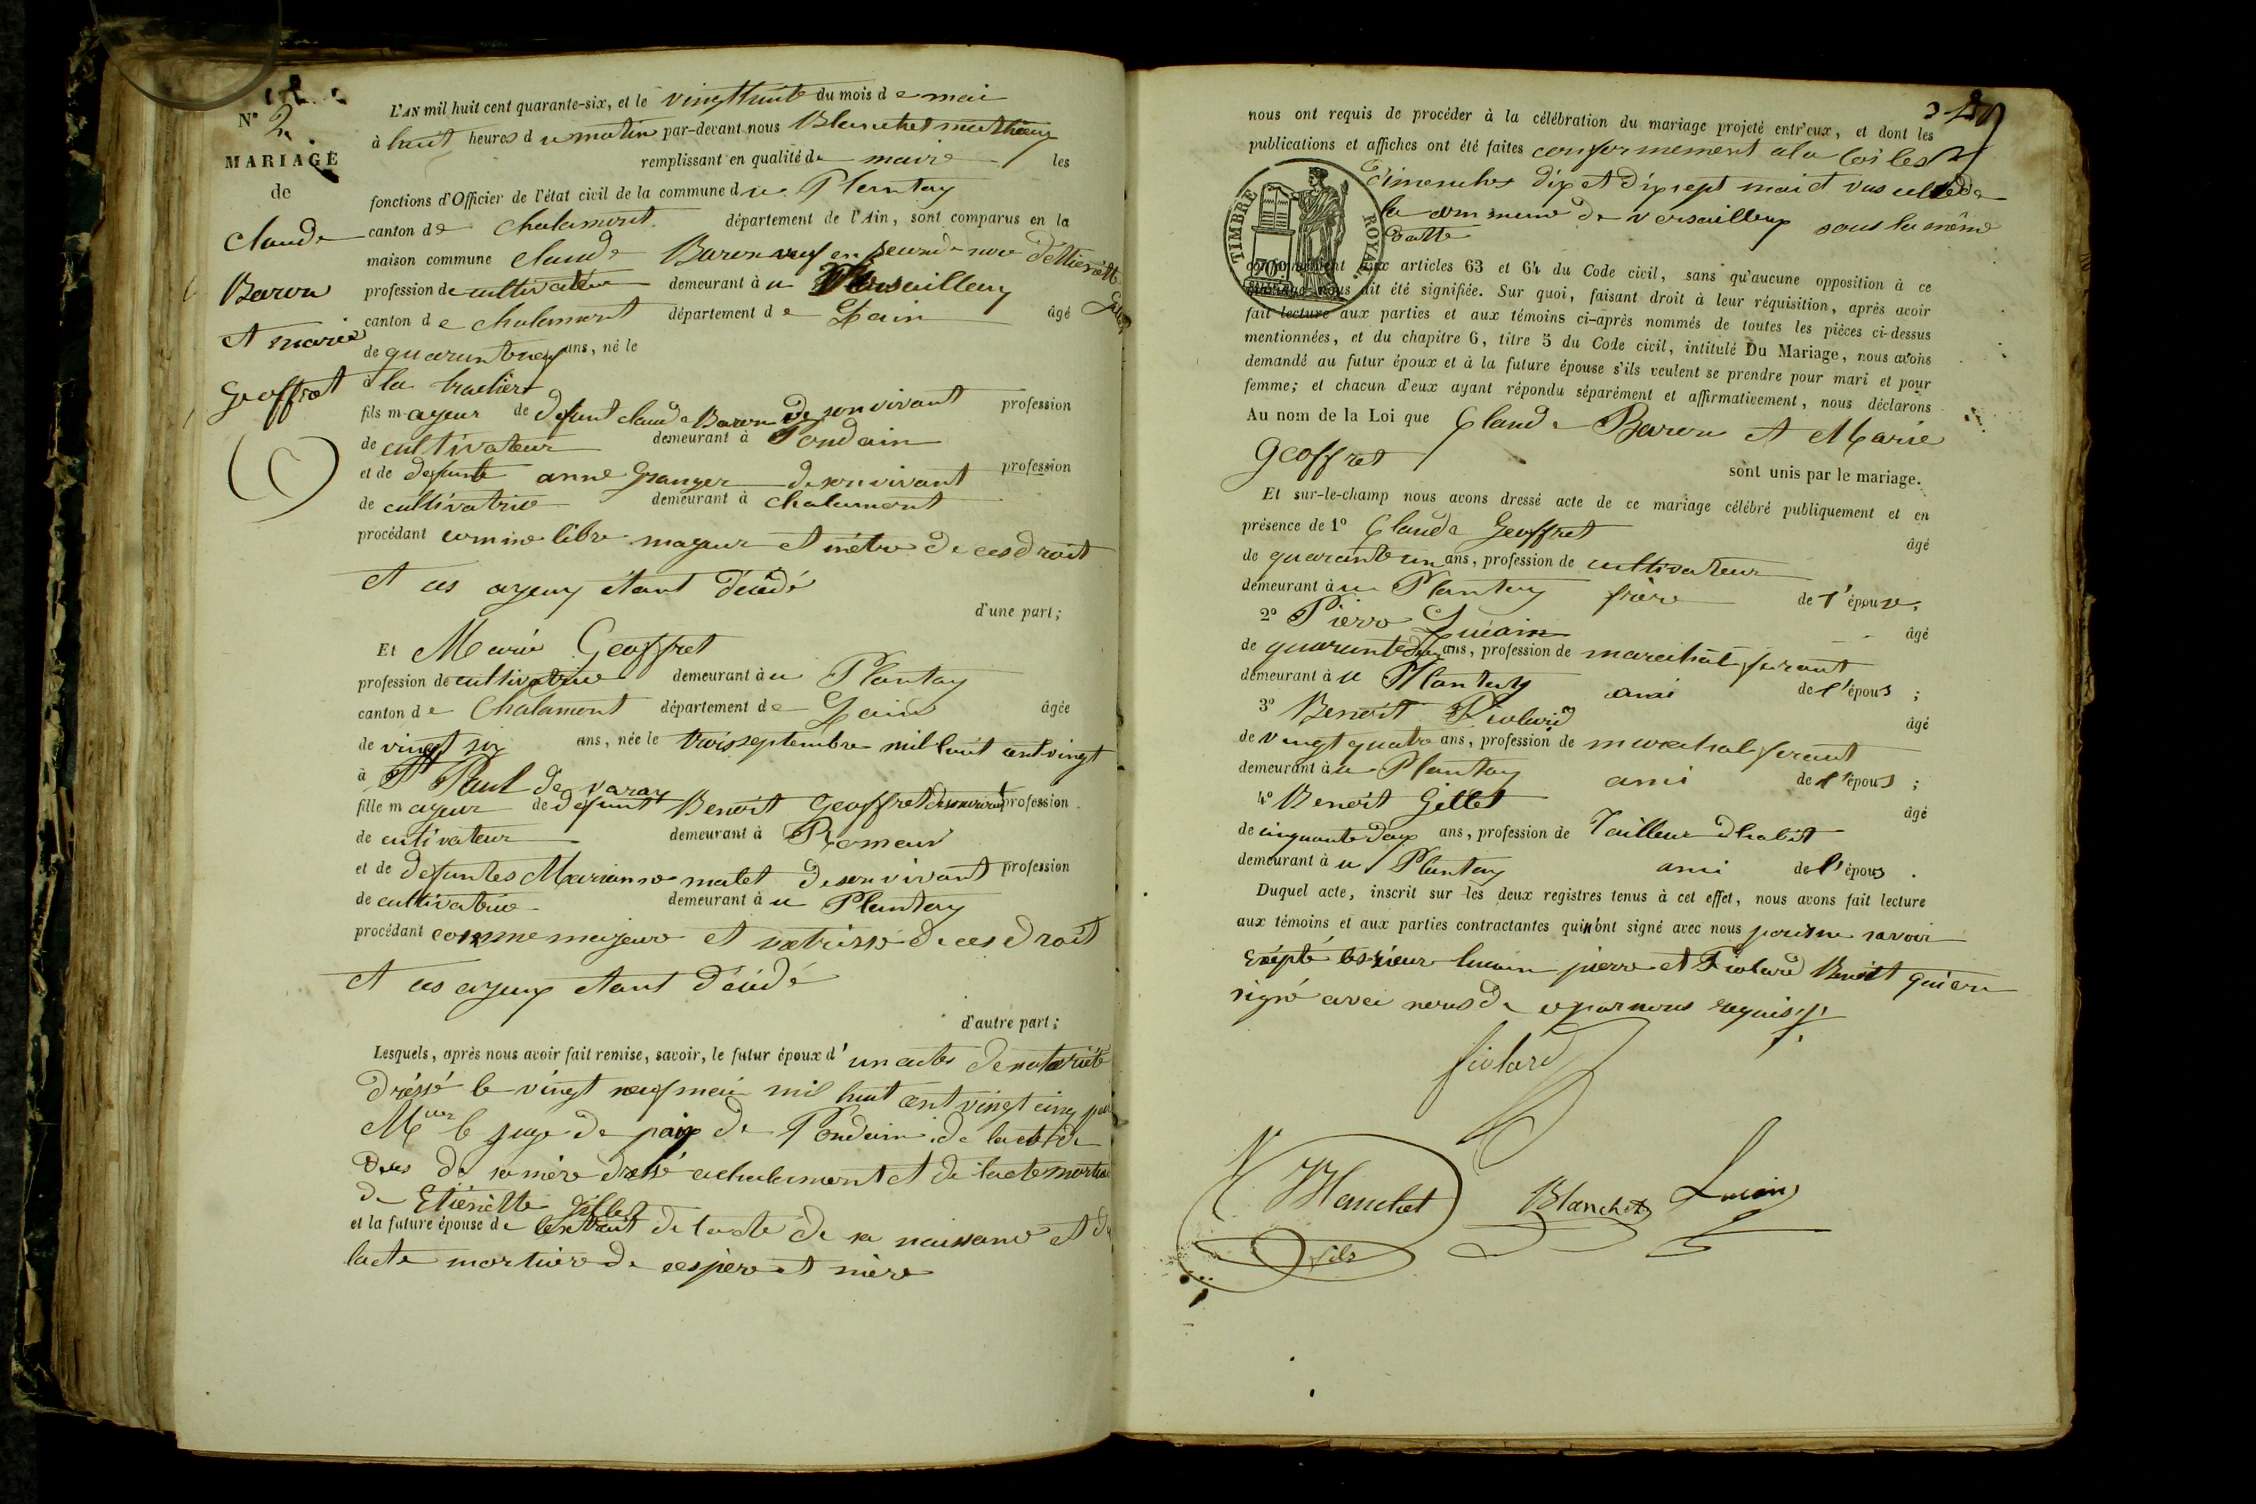 N° 2
MARIAGE
de
Claude
Baron
et marie
Geoffret
L'AN mil huit cent quarante-six, et le vingt huit du mois de mai
à huit heures du matin par-devant nous Blanchet mathieu
remplissant en qualité de maire les
fonctions d'Officier de l'état civil de la commune du Plantay
canton de Chalamont département de l'Ain, sont comparus en la
maison commune Claude Baron veuf en seconde noce d'ettienette Gillet
profession de cultivateur demeurant à u Versailleux
canton de chalamont département de Lain âgé
de quarunt neuf ans, né le
à la
fils mayeur de defunt claude Baron de son vivant profession
de cultivateur demeurant à Pondain
et de defunte anne Granger de son vivant profession
de cultivatrice demeurant à chalamont
procédant comme libre mayeur et métre de ces droit
et ces ayeux étant décédé
d'une part;
Et Marie Geoffret
profession de cultivatrice demeurant à u Plantay
canton de Chalamont département de Lain âgée
de vingt six ans, née le trois septembre mil huit cent vingt
à St Paul de varax
fille mayeur de defunt Benoit Geoffret de son vivant profession
de cutivateur demeurant à Romeur
et de defuntes Marianne matet de son vivant profession
de cultivatrice demeurant à u Plantay
procédant comme mayeure et metrisse de ces droit
et ces ayeux etant décédé
d'autre part;
Lesquels, après nous avoir fait remise, savoir, le futur époux d'un actes de notoriété
dréssé le vingt neuf mai mil huit cent vingt cinq par
Mr le juge de paix de Pondain de lacte de
deces de sa mère dressé a chalamont et de lacte mortuaire
de Etiénette Gillet
et la future épouse de lextrait de lacte de sa naissance et de
lacte mortuère de ces père et mère
nous ont requis de procéder à la célébration du mariage projeté entr'eux, et dont les
publications et affiches ont été faites conformement a la loi les
Dimenches dix et dix sept mai et vus celle de
la commune de versailleux sous la même
datte
TIMBRE ROYAL
conformément aux articles 63 et 64 du Code civil, sans qu'aucune opposition à ce
mariage nous ait été signifiée. Sur quoi, faisant droit à leur réquisition, après avoir
fait lecture aux parties et aux témoins ci-après nommés de toutes les pièces ci-dessus
mentionnées, et du chapitre 6, titre 5 du Code civil, intitulé Du Mariage, nous avons
demandé au futur époux et à la future épouse s'ils veulent se prendre pour mari et pour
femme; et chacun d'eux ayant répondu séparément et affirmativement, nous déclarons
Au nom de la Loi que Claude Baron et Marie
Geoffret
sont unis par le mariage.
Et sur-le-champ nous avons dressé acte de ce mariage célébré publiquement et en
présence de 1° Claude Geoffret âgé
de quarante un ans, profession de cultivateur
demeurant à u Plantay frère de l'épouse,
2° Pierre Lucain âgé
de quarunte ans, profession de marechal ferant
demeurant à u Plantay ami de l'épous ;
3° Benoit Fiolard âgé
de vingt quatre ans, profession de marechal ferant
demeurant à u Plantay ami de l'épous ;
4° Benoit Gillet âgé
de cinquante deux ans, profession de Tailleur dhabit
demeurant à u Plantay ami de l'épous .
Duquel acte, inscrit sur les deux registres tenus à cet effet, nous avons fait lecture
aux témoins et aux parties contractantes qui n'ont signé avec nous pour ne savoir
exépté les sieur lucain pierre et Fiolard Benoit qui on
signé avec nous de ce par nous requis
fiolard
Blanchet Blanchet Lucain
fils